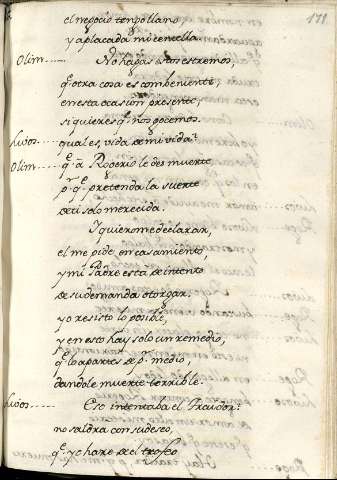 171
el negocio tenpollano
y aplacada mi centella.
Olim..... No hagas estos estremos,
q.e otra cosa es combeniente,
en esta ocasion presente,
si quieres q.e nos gocemos.
Livos..... qual es, vida de mi vida?
Olim..... q.e à Rogerio le des muerte
p.r q.e pretenda la suerte
de ti solo merecida.
Y quierome declarar,
el me pide en casamiento,
y mi Padre està de intento
de su demanda otorgar.
yo resisto lo posible,
y en esto hay solo un remedio,
q.e lo apartes de p.r medio,
dandole muerte terrible.
Livos..... Eso intentaba el Traidor?
no saldra con su deseo,
q.e yo hare de el trofeo